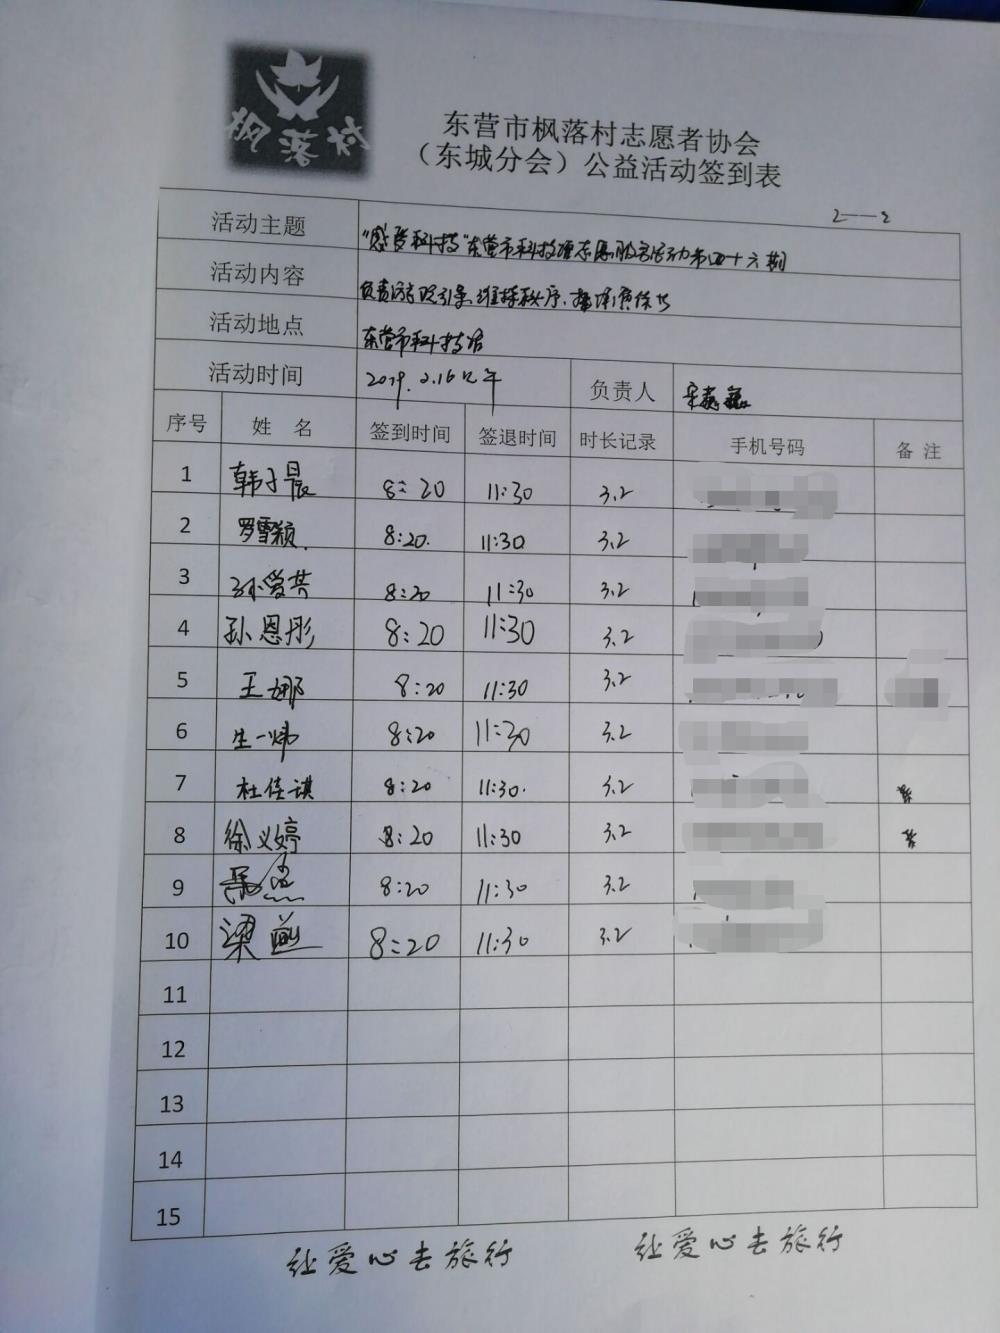 枫落村
东营市枫落村志愿者协会
（东城分会）公益活动签到表
2——2
活动主题 "感受科技"东营市科技馆志愿服务活动第四十六期
活动内容 负责游客引导、维持秩序、
活动地点 东营市科技馆
活动时间 2019.2.16 上午 负责人
序号 姓 名 签到时间 签退时间 时长记录 手机号码 备 注
1 韩子晨 8:20 11:30 3.2
2 罗雪颖 8:20 11:30 3.2
3 孙爱芸 8:20 11:30 3.2
4 孙恩彤 8:20 11:30 3.2
5 王娜 8:20 11:30 3.2
6 生一炜 8:20 11:30 3.2
7 杜佳琪 8:20 11:30 3.2
8 徐义婷 8:20 11:30 3.2
9 8:20 11:30 3.2
10 梁 8:20 11:30 3.2
11
12
13
14
15
让爱心去旅行 让爱心去旅行